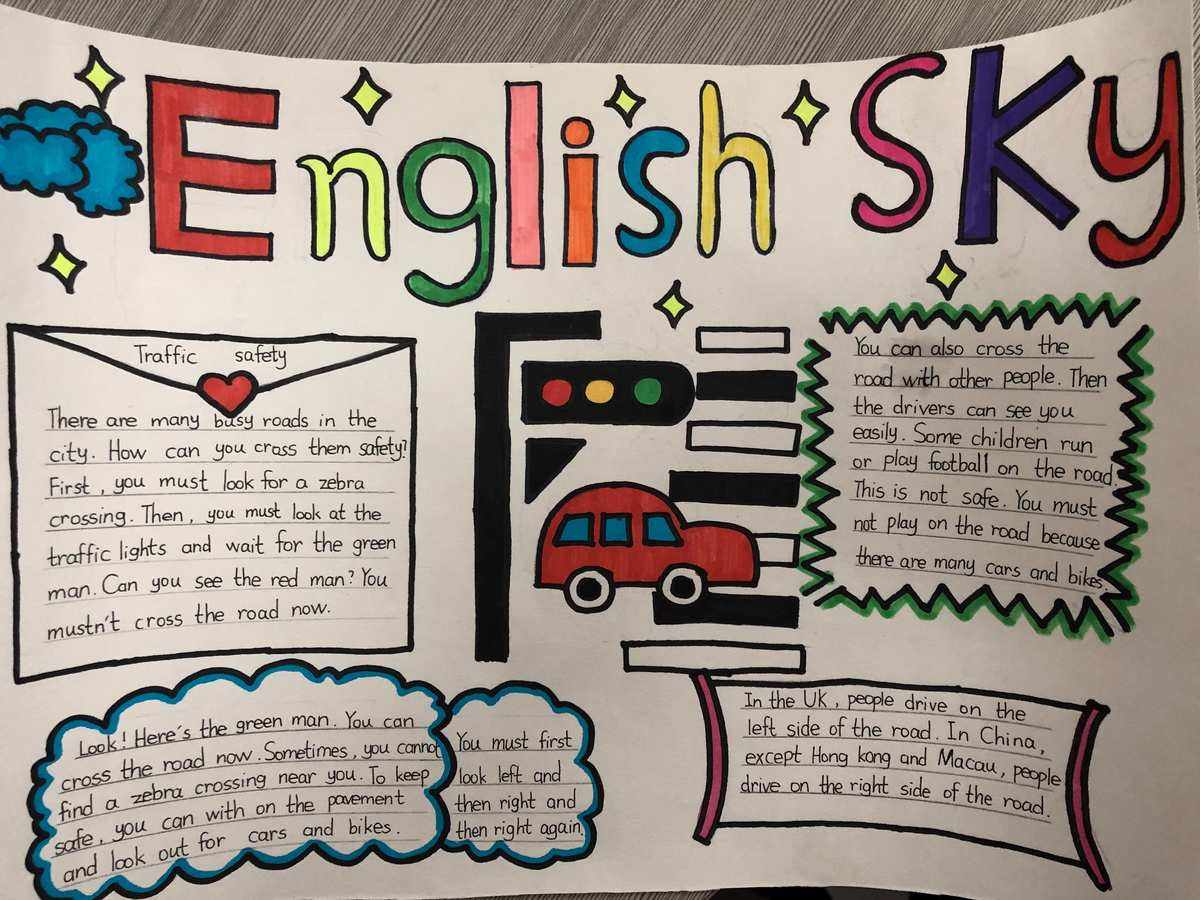 English Sky
Traffic safety
There are many busy roads in the
city. How can you cross them safety?
First, you must look for a zebra
crossing. Then, you must look at the
traffic lights and wait for the green
man. Can you see the red man? You
mustn't cross the road now.
You can also cross the
road with other people. Then
the drivers can see you
easily. Some children run
or play football on the road.
This is not safe. You must
not play on the road because
there are many cars and bikes.
Look! Here's the green man. You can
cross the road now. Sometimes, you cannot
find a zebra crossing near you. To keep
safe, you can with on the pavement
and look out for cars and bikes.
You must first
look left and
then right and
then right again.
In the UK, people drive on the
left side of the road. In China,
except Hong kong and Macau, people
drive on the right side of the road.